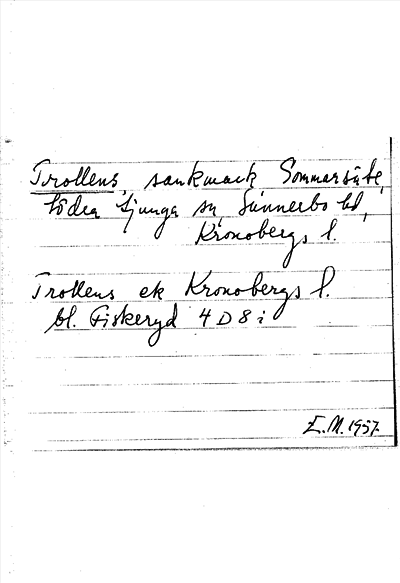 Trollens, sankmark, Sommarsäte,
Södra Ljunga sn, Sunnerbo hd,
Kronobergs l.
Trollens ek Kronobergs l.
bl. Fiskeryd 4 D 8 i
E.M. 1957.